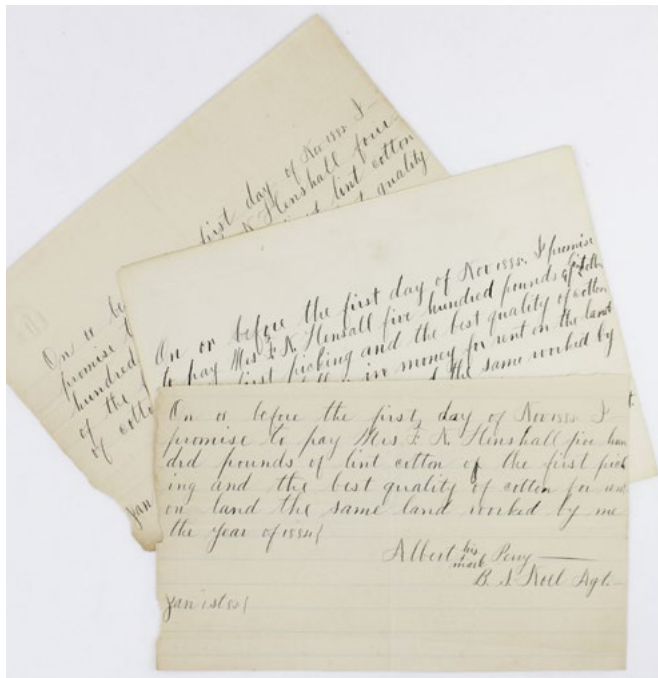 first day of Nov 1885 I
Henshall four
lint cotton
quality
On or be
promise
hundred
of the
of cotton
Jan
On or before the first day of Nov 1885. I promise
to pay Mrs F. N. Hensall five hundred pounds of
first picking and the best quality of cotton
money for rent on the land
the same worked by
On or before the first day of Nov 1885 I
promise to pay Mrs F. N. Henshall five hun
drd pounds of lint cotton of the first pick
ing and the best quality of cotton for rent
on land the same land worked by me
the year of
Albert his mark Perry
B. S. Noel Agt.
Jan 1st